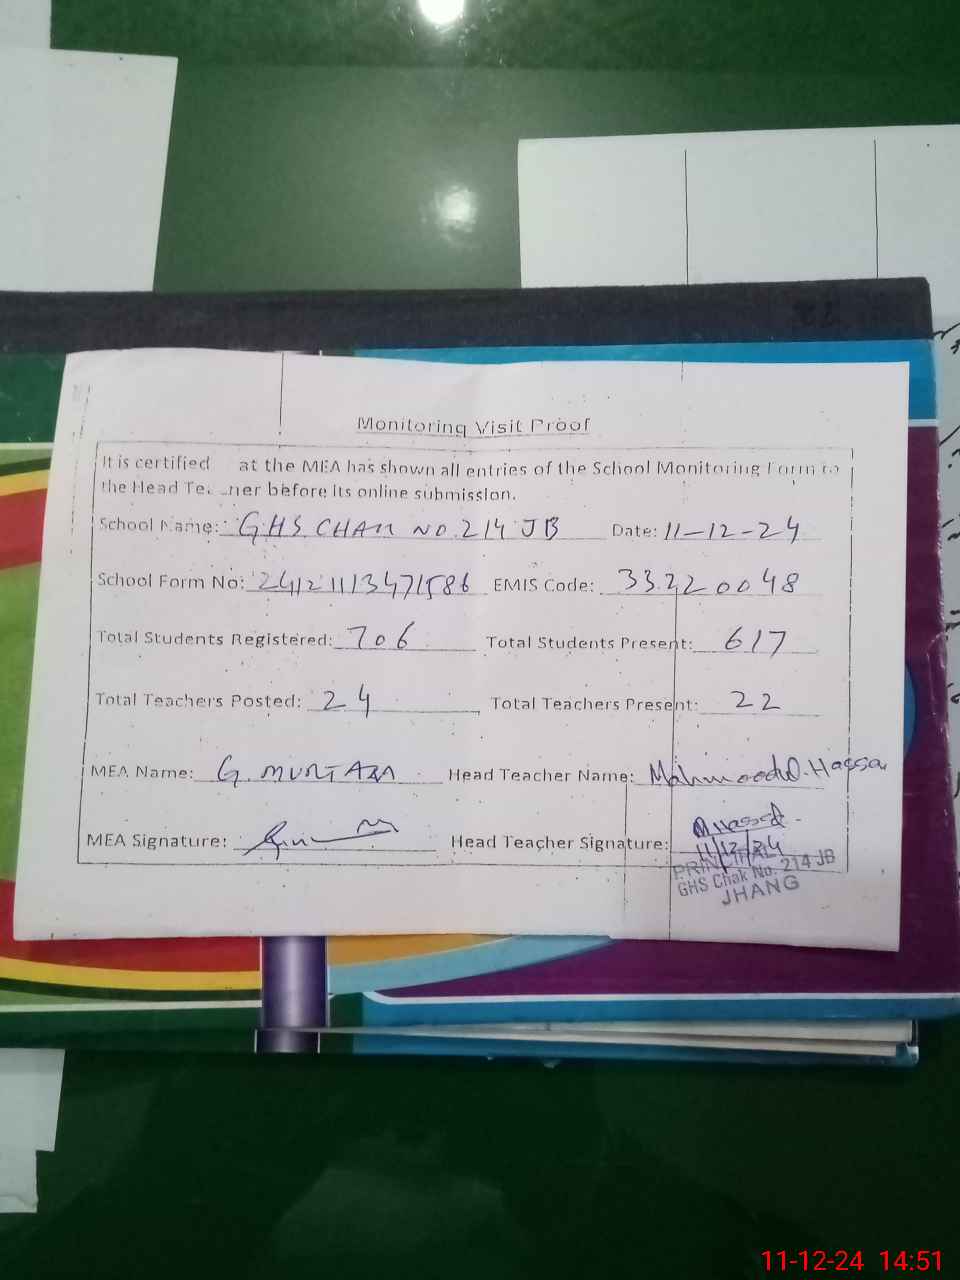 Monitoring Visit Proof
It is certified at the MEA has shown all entries of the School Monitoring Form to
the Head Te ner before its online submission.
School Name: GHS CHAK NO. 214 JB Date: 11-12-24
School Form No: EMIS Code: 33220048
Total Students Registered: 706 Total Students Present: 617
Total Teachers Posted: 24 Total Teachers Present: 22
MEA Name: G. MURTAZA Head Teacher Name: Mahmood Hassan
MEA Signature: Head Teacher Signature:
11/12/24
PRINCIPAL
GHS Chak No. 214 JB
JHANG
11-12-24 14:51